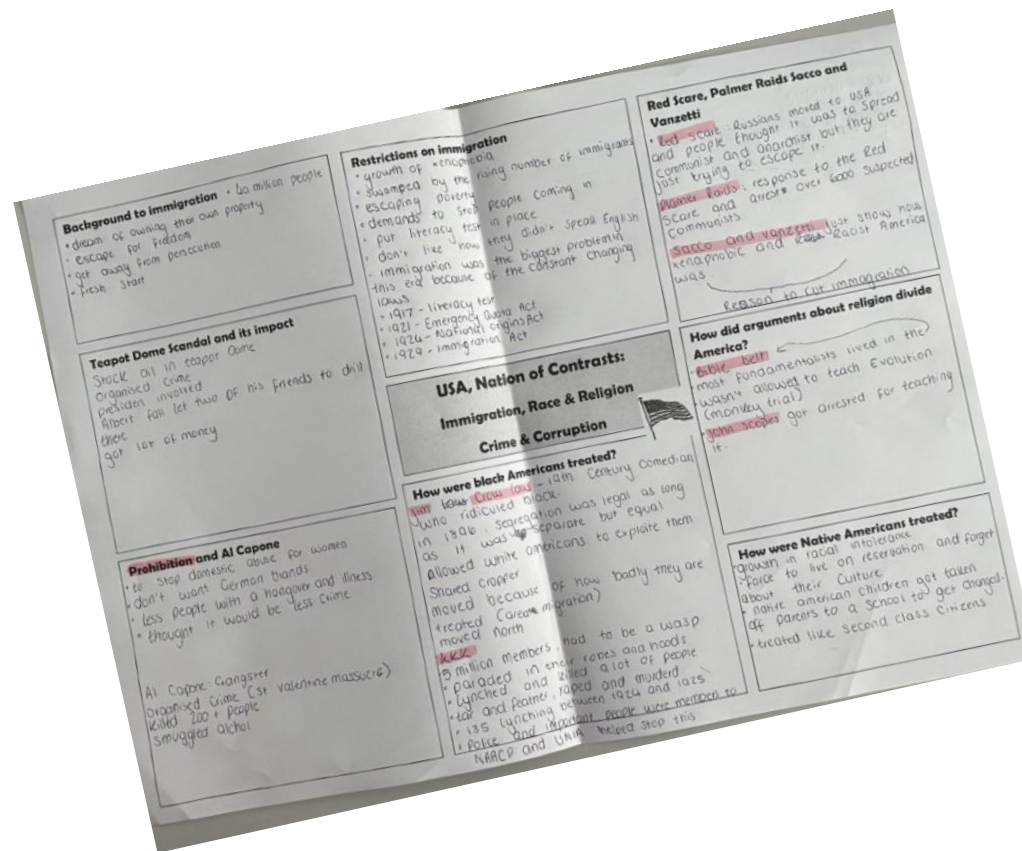 Background to immigration • 40 million people
• dream of owning ther own property
• escape for freedom
• get away from persecution
• fresh start
Teapot Dome Scandal and its impact
Stock oil in teapot Dome
organised crime
presiden involved
Albert Fall let two of his friends to drill
there
got lot of money
Prohibition and Al Capone
• to stop domestic abuse for women
• don't want German brands
• less people with a hangover and illness
• thought it would be less crime
Al Capone: Gangster
organised crime (St valentine massucre)
killed 200+ people
smuggled alchol
Restrictions on immigration
• growth of xenophobia
• swamped by the rising number of immigrants
• escaping poverty
• demands to stop people coming in
• put literacy test in place
• don't like how they didn't speak English
• immigration was the biggest problem in
this era because of the constant changing
laws
• 1917 - literacy test
• 1921 - Emergency Quota Act
• 1924 - National origins Act
• 1929 - Immigration Act
USA, Nation of Contrasts:
Immigration, Race & Religion
Crime & Corruption
How were black Americans treated?
Jim Crow law - 19th Century Comedian
who ridiculed black.
in 1896, segregation was legal as long
as it was separate but equal
allowed white americans to exploite them
Shared cropper
moved because of how badly they are
treated (Great migration)
moved north
KKK
5 million members, had to be a wasp
• paraded in their robes and hoods
• lynched and killed a lot of people
• tar and feather, raped and murderd
• 135 lynching between 1924 and 1925
• Police and important people were members to
NAACP and UNIA helped stop this
Red Scare, Palmer Raids Sacco and
Vanzetti
• Red scare: Russians moved to USA
and people thought it was to spread
communist and anarchist but they are
just trying to escape it.
Palmer Raids: response to the Red
scare and arrests over 6000 suspected
communists
Sacco and vanzetti just show how
xenaphobic and Racist America
was
Reason to cut immagration
How did arguments about religion divide
America?
• Bible belt
• most fundamentalists lived in the
• wasn't allowed to teach Evolution
(monkey trial)
• John scopes got arrested for teaching
it.
How were Native Americans treated?
• growth in racial intolerance
• force to live on reservation and forget
about their culture
• native american children got taken
off parents to a school to get changed.
• treated like second class citizens